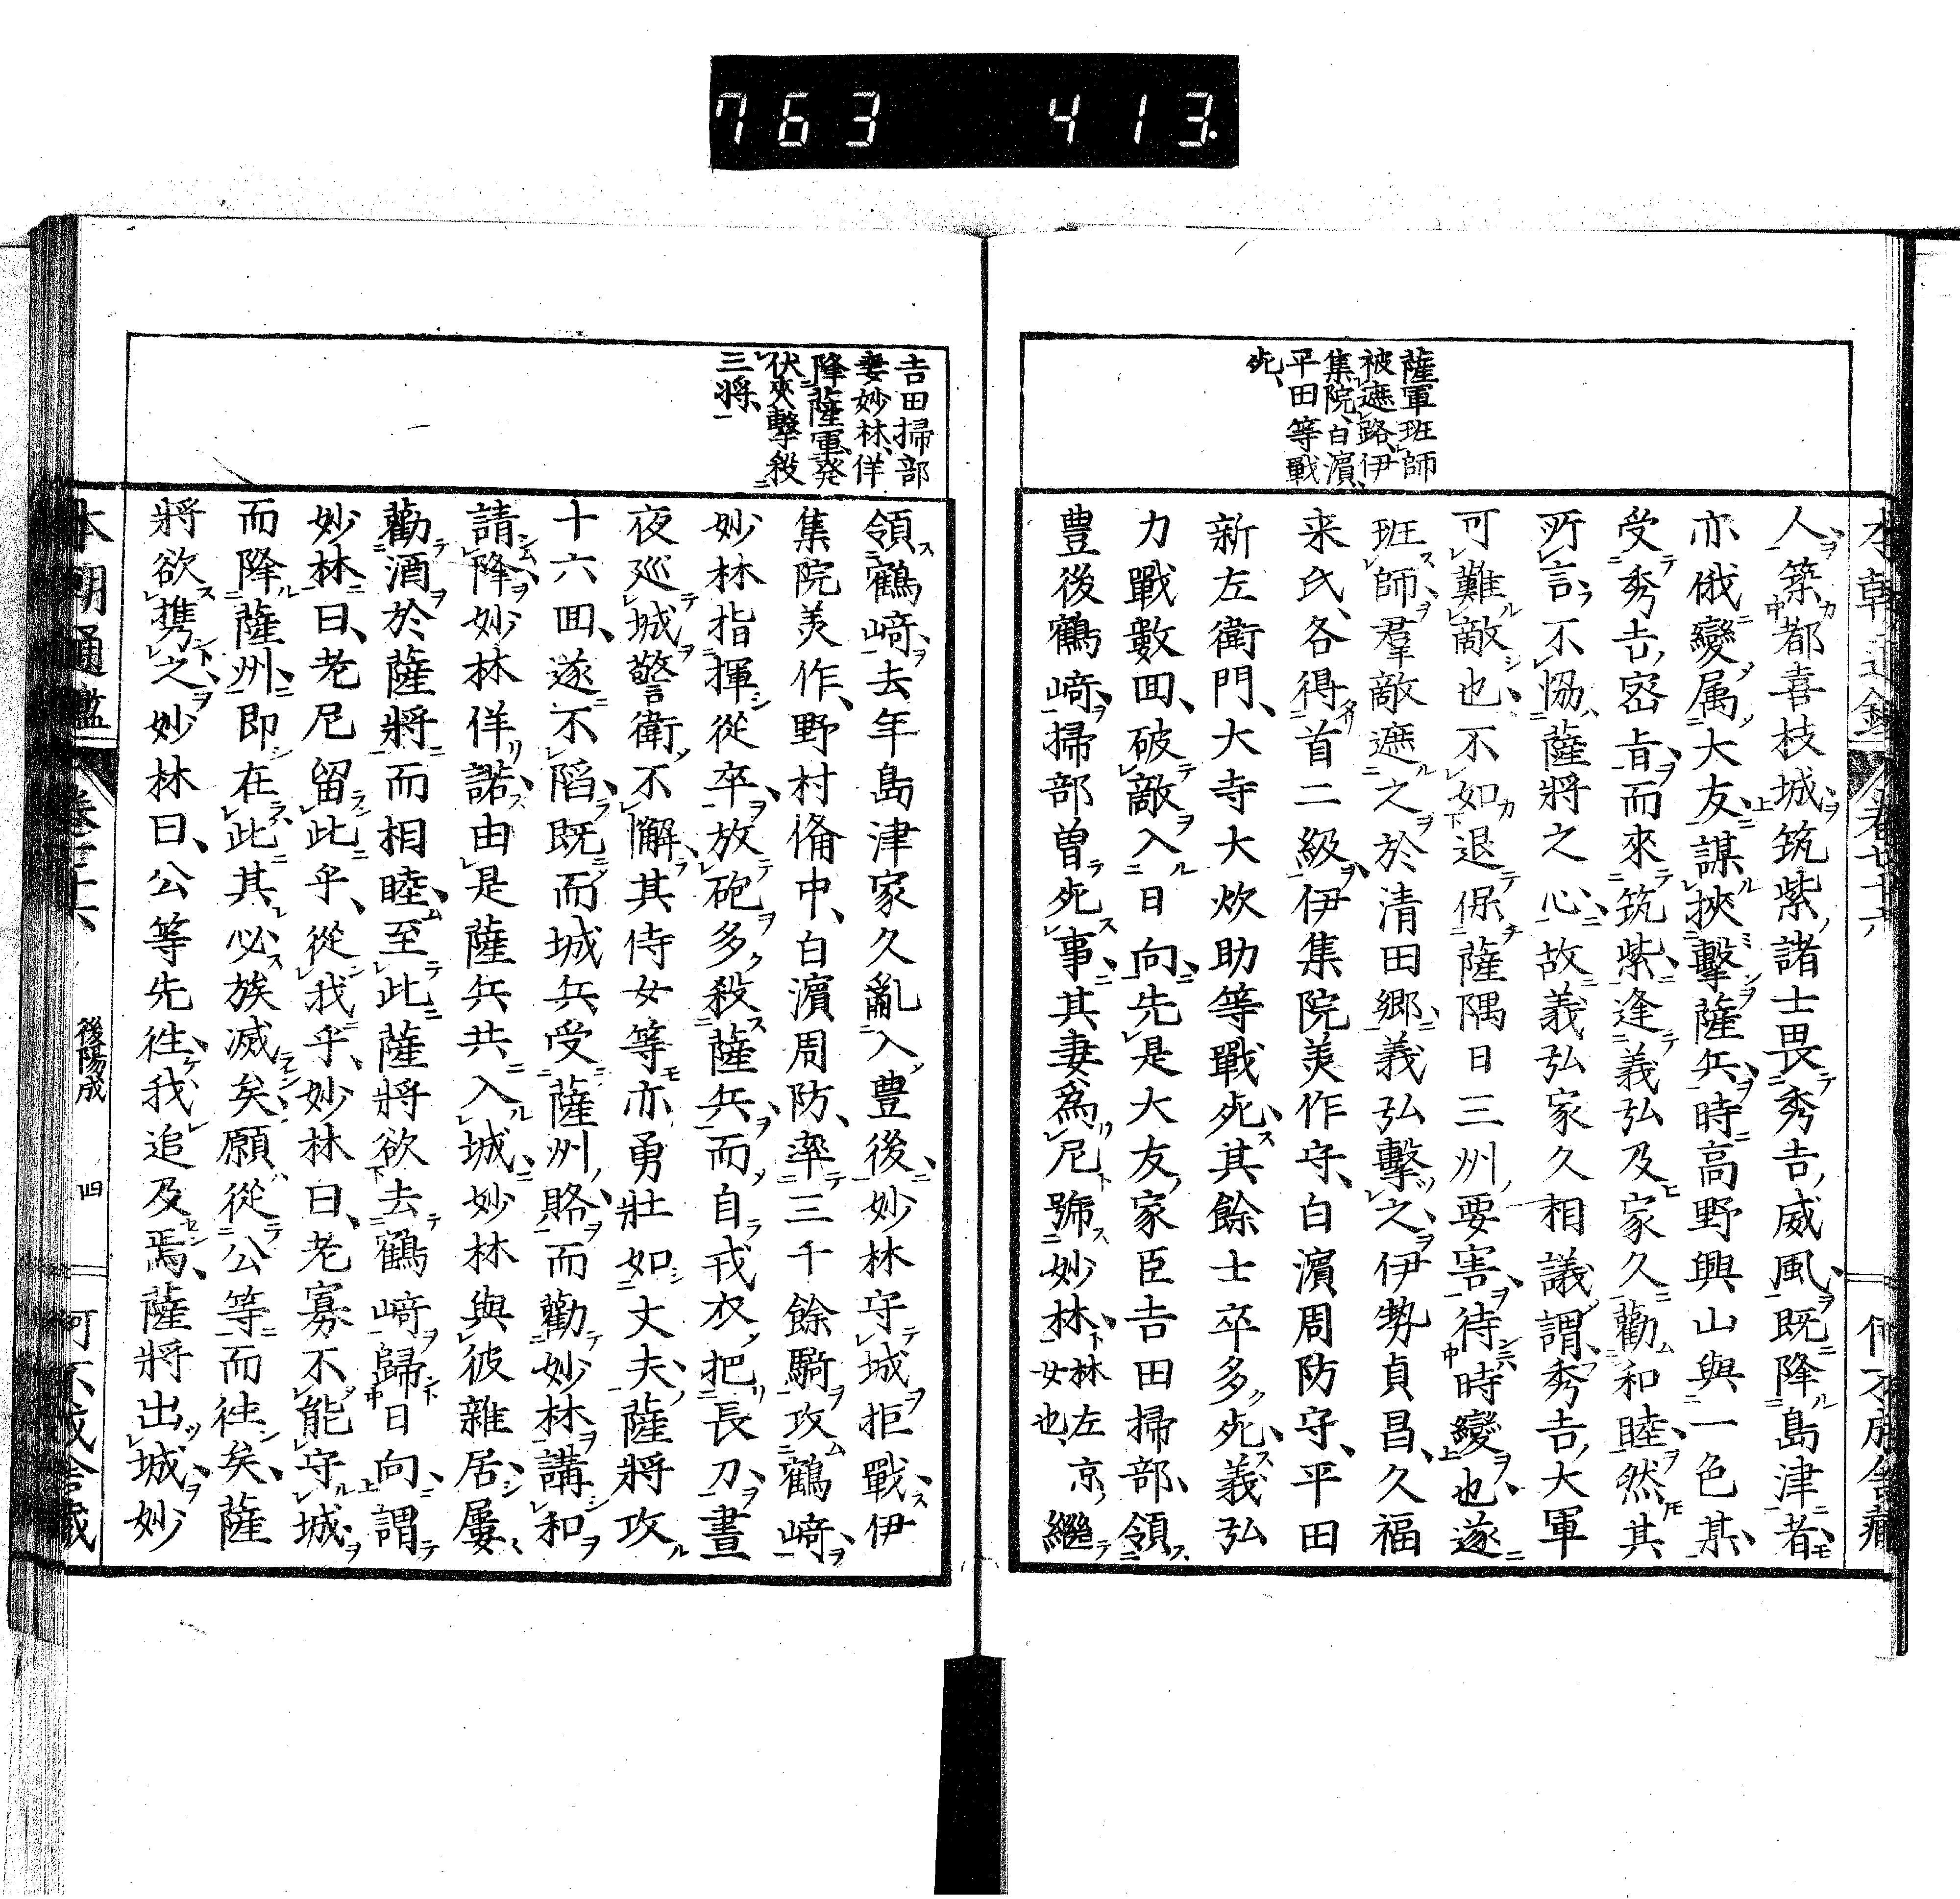 763 413.
本朝通鑑
薩軍班師
被遮路、伊
集院、白濱、
平田等戰
死、
人築都喜枝城筑紫諸士畏秀吉威風既降島津者
亦俄變属大友謀挾擊薩兵時高野興山與一色某、
受秀吉密旨而來筑紫逢義弘及家久勸和睦然其
所言不協薩將之心故義弘家久相議謂秀吉大軍
可難敵也不如退保薩隅日三州要害待時變也遂
班師羣敵遮之於清田郷義弘擊之伊勢貞昌、久福
来氏、各得首二級伊集院美作守、白濱周防守、平田
新左衛門、大寺大炊助等戰死其餘士卒多死義弘
力戰數回、破敵入日向先是大友家臣吉田掃部、領
豊後鶴﨑掃部曽死事其妻為尼號妙林林左京女也、繼
吉田掃部
妻妙林、佯
降薩軍、発
伏夾擊殺
三將、
領鶴﨑去年島津家久亂入豊後妙林守城拒戰伊
集院美作、野村俻中、白濱周防、率三千餘騎攻鶴﨑
妙林指揮從卒放砲多殺薩兵而自戎衣把長刀晝
夜巡城警衛不懈其侍女等亦勇壯如丈夫薩將攻
十六回、遂不陷既而城兵受薩州賂而勸妙林講和
請降妙林佯諾由是薩兵共入城妙林與彼雜居屢
勸酒於薩將而相睦至此薩將欲去鶴﨑歸日向謂
妙林曰、老尼留此乎、從我乎、妙林曰、老寡不能守城
而降薩州即在此其必族滅矣願從公等而往矣薩
將欲携之妙林曰、公等先徃我追及焉薩將出城妙
本朝通鑑
後陽成
四